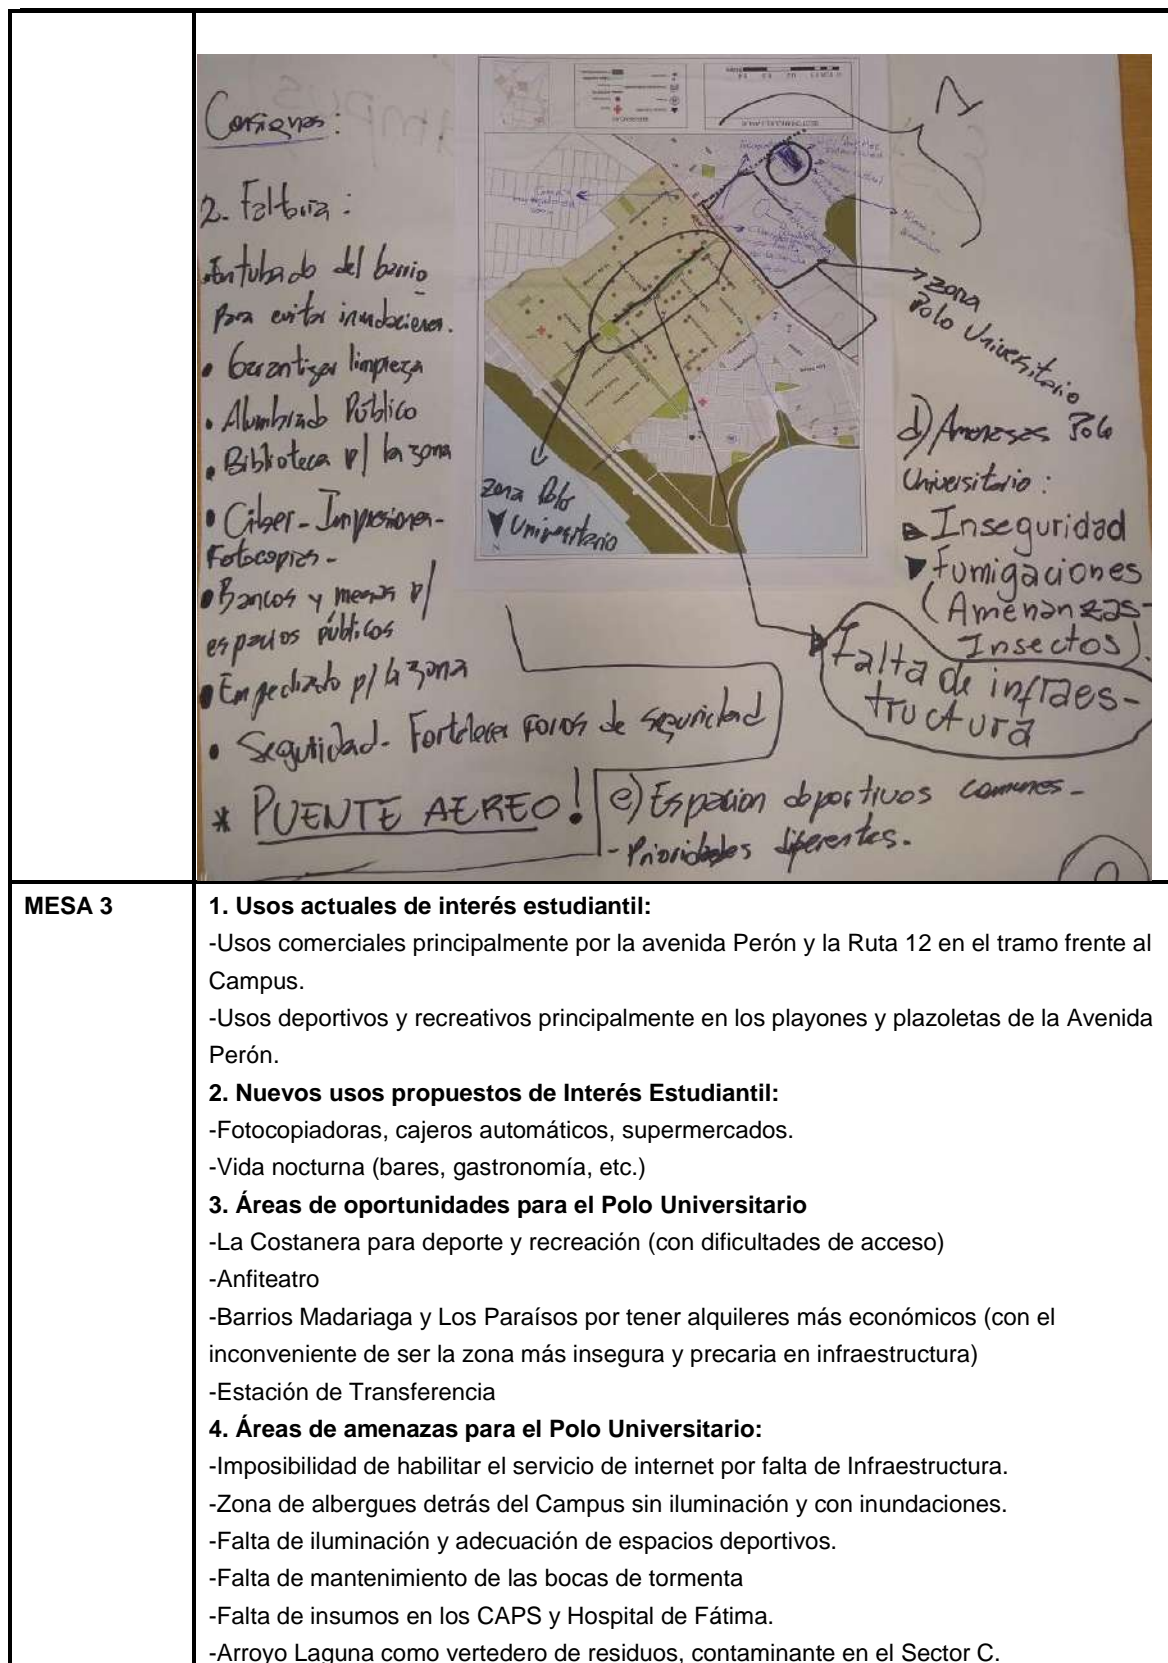 Consignas:
2. Faltaría:
• Entubado del barrio
para evitar inundaciones.
• Garantizar limpieza
• Alumbrado Público
• Biblioteca p/ la zona
• Ciber - Impresiones -
Fotocopias -
• Bancos y mesas p/
espacios públicos
• Empedrado p/ la zona
• Seguridad - Fortalecer foros de seguridad
* PUENTE AEREO!
zona Polo
Universitario
zona
Polo Universitario
d) Amenazas Polo
Universitario:
Inseguridad
Fumigaciones
(Amenanzas-
Insectos).
Falta de infraes-
tructura
e) Espacios deportivos comunes -
- Prioridades diferentes.
MESA 3
1. Usos actuales de interés estudiantil:
-Usos comerciales principalmente por la avenida Perón y la Ruta 12 en el tramo frente al
Campus.
-Usos deportivos y recreativos principalmente en los playones y plazoletas de la Avenida
Perón.
2. Nuevos usos propuestos de Interés Estudiantil:
-Fotocopiadoras, cajeros automáticos, supermercados.
-Vida nocturna (bares, gastronomía, etc.)
3. Áreas de oportunidades para el Polo Universitario
-La Costanera para deporte y recreación (con dificultades de acceso)
-Anfiteatro
-Barrios Madariaga y Los Paraísos por tener alquileres más económicos (con el
inconveniente de ser la zona más insegura y precaria en infraestructura)
-Estación de Transferencia
4. Áreas de amenazas para el Polo Universitario:
-Imposibilidad de habilitar el servicio de internet por falta de Infraestructura.
-Zona de albergues detrás del Campus sin iluminación y con inundaciones.
-Falta de iluminación y adecuación de espacios deportivos.
-Falta de mantenimiento de las bocas de tormenta
-Falta de insumos en los CAPS y Hospital de Fátima.
-Arroyo Laguna como vertedero de residuos, contaminante en el Sector C.